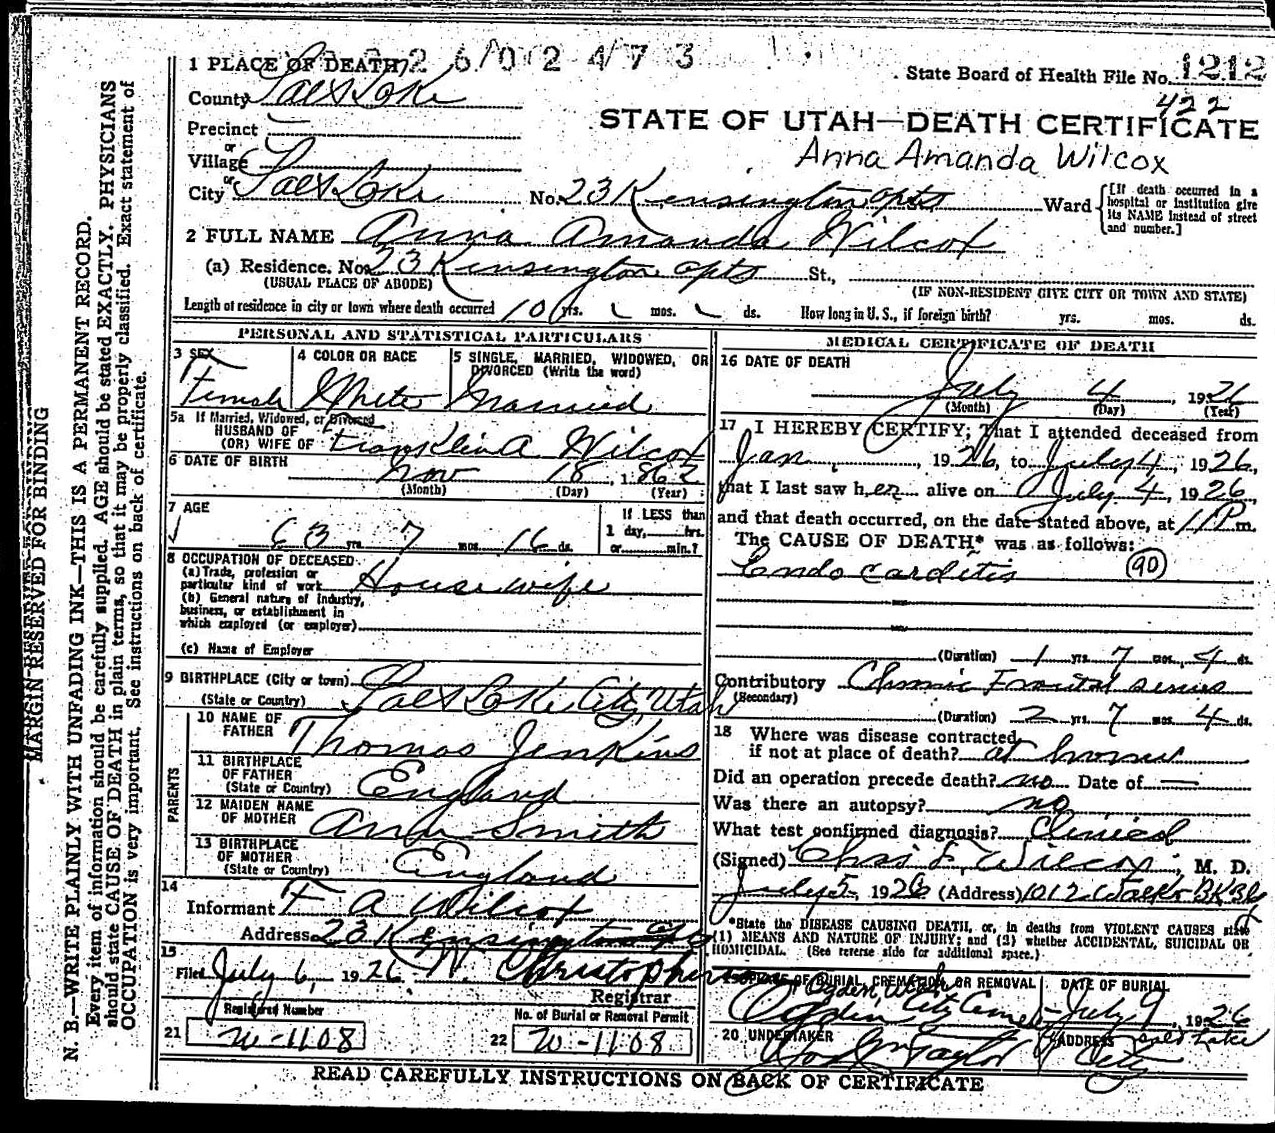 2 6/0 2 4/7 3
1 PLACE OF DEATH
State Board of Health File No. 1212
422
County Salt Lake
STATE OF UTAH—DEATH CERTIFICATE
Precinct
or
Anna Amanda Wilcox
Village
or
City Salt Lake No. 23 Kensington apts Ward
[If death occurred in a hospital or institution give its NAME instead of street and number.]
2 FULL NAME Anna Amanda Wilcox
(a) Residence. No. 23 Kensington apts St.,
(USUAL PLACE OF ABODE)
(IF NON-RESIDENT GIVE CITY OR TOWN AND STATE)
Length of residence in city or town where death occurred 10 yrs. mos. ds. How long in U. S., if foreign birth? yrs. mos. ds.
PERSONAL AND STATISTICAL PARTICULARS
3 SEX
Female
4 COLOR OR RACE
White
5 SINGLE, MARRIED, WIDOWED, OR
DIVORCED (Write the word)
Married
5a If Married, Widowed, or Divorced
HUSBAND OF
(OR) WIFE OF Franklin A Wilcox
6 DATE OF BIRTH Nov 18, 1862
(Month) (Day) (Year)
7 AGE
63 yrs. 7 mos. 16 ds.
If LESS than
1 day, hrs.
or min.?
8 OCCUPATION OF DECEASED
(a) Trade, profession or
particular kind of work Housewife
(b) General nature of industry,
business, or establishment in
which employed (or employer)
(c) Name of Employer
9 BIRTHPLACE (City or town)
(State or Country) Salt Lake City, Utah
PARENTS
10 NAME OF
FATHER Thomas Jenkins
11 BIRTHPLACE
OF FATHER
(State or Country) England
12 MAIDEN NAME
OF MOTHER Ann Smith
13 BIRTHPLACE
OF MOTHER
(State or Country) England
14
Informant F A Wilcox
Address 23 Kensington
15
Filed July 6, 1926
Registrar
Registered Number
No. of Burial or Removal Permit
21 W-1108 22 W-1108
MEDICAL CERTIFICATE OF DEATH
16 DATE OF DEATH
July 4, 1926
(Month) (Day) (Year)
17 I HEREBY CERTIFY; That I attended deceased from
Jan, 1926, to July 4, 1926,
that I last saw her alive on July 4, 1926,
and that death occurred, on the date stated above, at 11 P m.
The CAUSE OF DEATH* was as follows:
Endo carditis 90
(Duration) 1 yrs. 7 mos. 4 ds.
Contributory Chronic Frontal sinus
(Secondary)
(Duration) 2 yrs. 7 mos. 4 ds.
18 Where was disease contracted
if not at place of death? at home
Did an operation precede death? no Date of —
Was there an autopsy? no
What test confirmed diagnosis? Clinical
(Signed) Chas F Wilcox, M. D.
July 5, 1926 (Address) 1012 Walker BK Bldg
*State the DISEASE CAUSING DEATH, or, in deaths from VIOLENT CAUSES state
(1) MEANS AND NATURE OF INJURY; and (2) whether ACCIDENTAL, SUICIDAL OR
HOMICIDAL. (See reverse side for additional space.)
PLACE OF BURIAL, CREMATION OR REMOVAL
Ogden, Utah
Ogden City Cem
DATE OF BURIAL
July 9, 1926
20 UNDERTAKER
Taylor
ADDRESS Salt Lake
City
READ CAREFULLY INSTRUCTIONS ON BACK OF CERTIFICATE
MARGIN RESERVED FOR BINDING
N. B.—WRITE PLAINLY WITH UNFADING INK—THIS IS A PERMANENT RECORD.
Every item of information should be carefully supplied. AGE should be stated EXACTLY. PHYSICIANS
should state CAUSE OF DEATH in plain terms, so that it may be properly classified. Exact statement of
OCCUPATION is very important. See instructions on back of certificate.